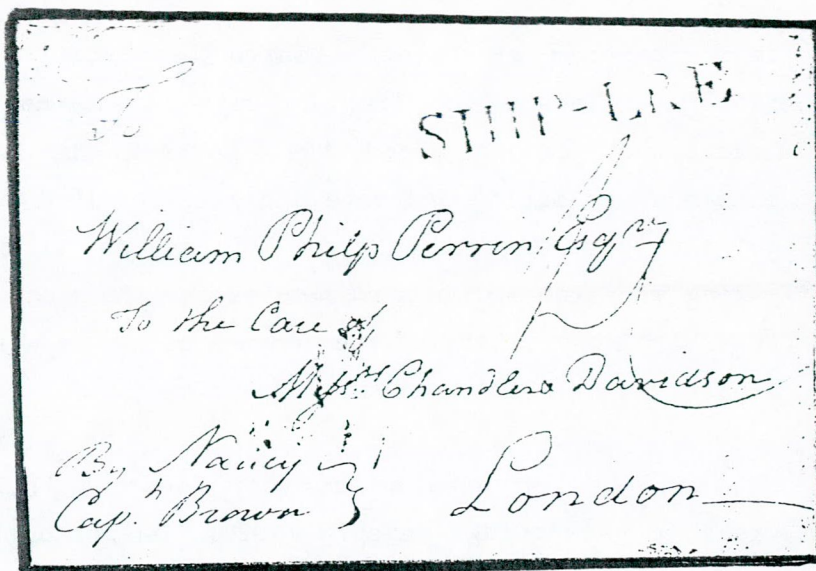 To
SHIP-LRE
William Philp Perrin Esqre
To the Care of
Messrs Chandler & Davidson
By Nancy
Capt. Brown
London